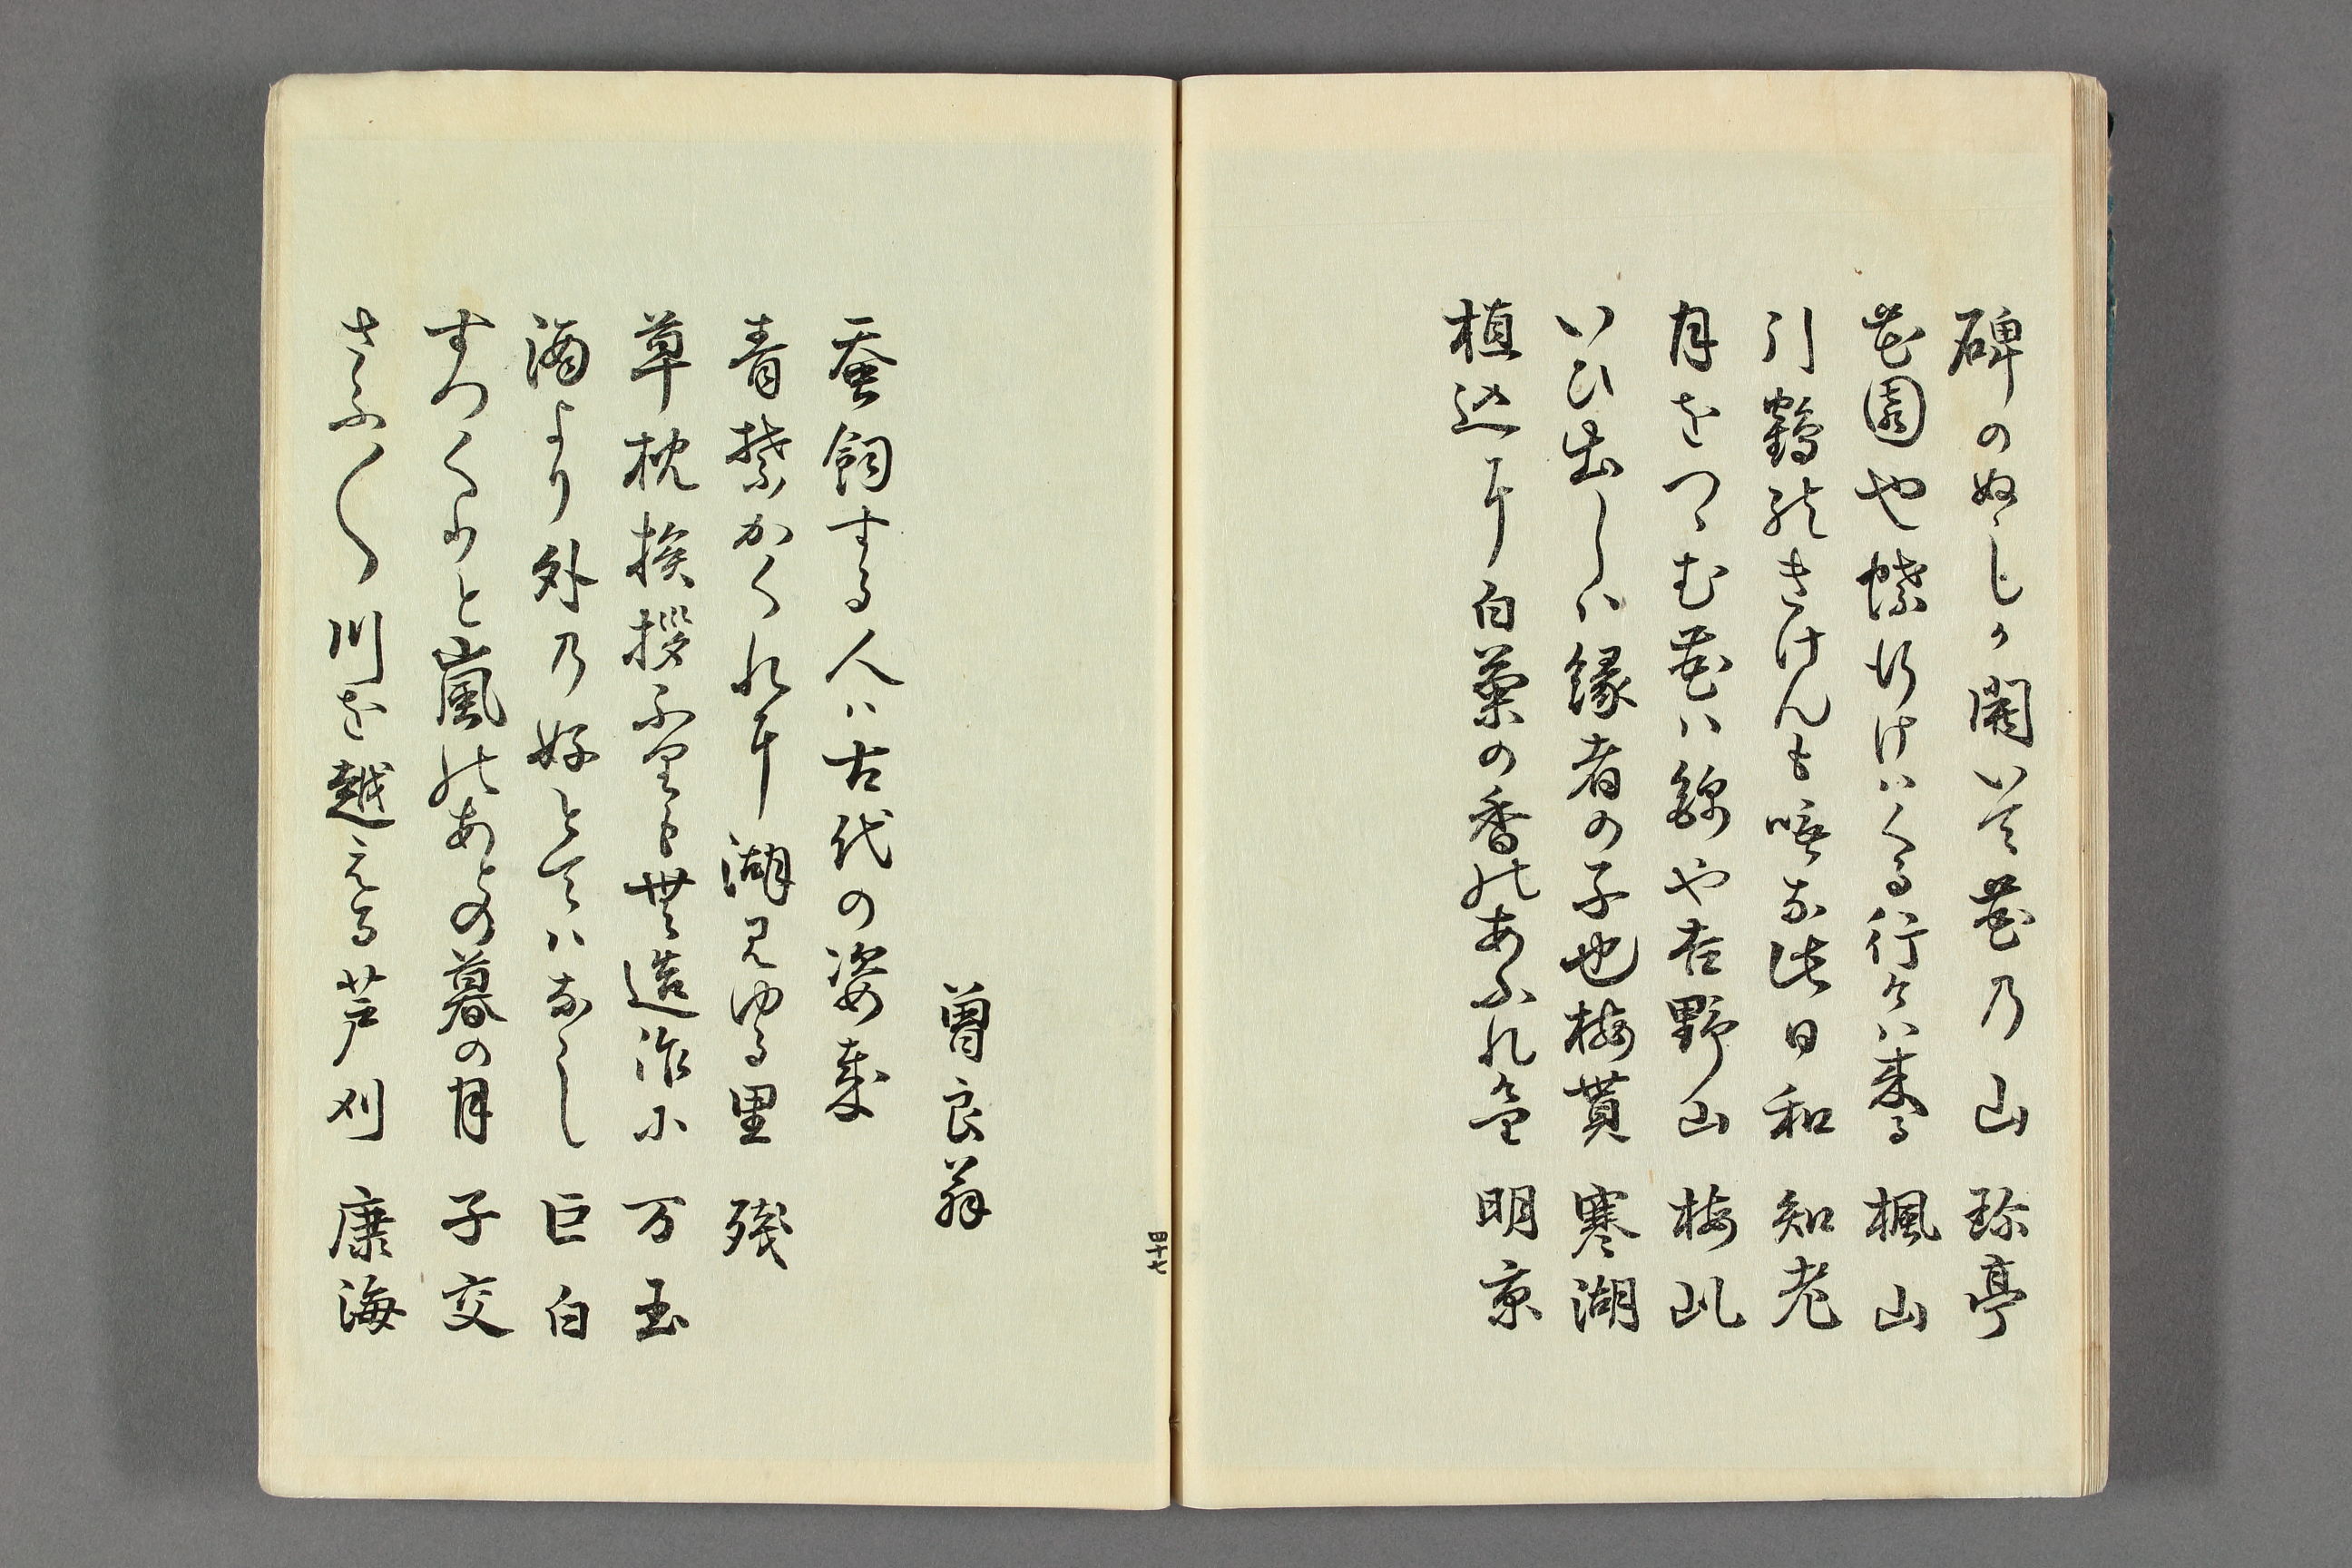 碑のぬしか聞いて花乃山 珎亭
花園や蝶行けはくる行けは来る 楓山
引鶴のきけんも啼な此日和 知老
月をつゝむ花は錦や吉野山 梅汎
いひ出しは縁者の子也梅貰 寒湖
植込に白菊の香のあふれ 明京
曽良翁
蚕飼する人は古代の姿哉
青葉かくれに湖見ゆる里 残
草枕挨拶ふりも無造作に 万玉
酒より外乃好とてはなし 巨白
すつくりと嵐のあとの暮の月 子交
さふ〳〵川を越える芦刈 康海
四十七